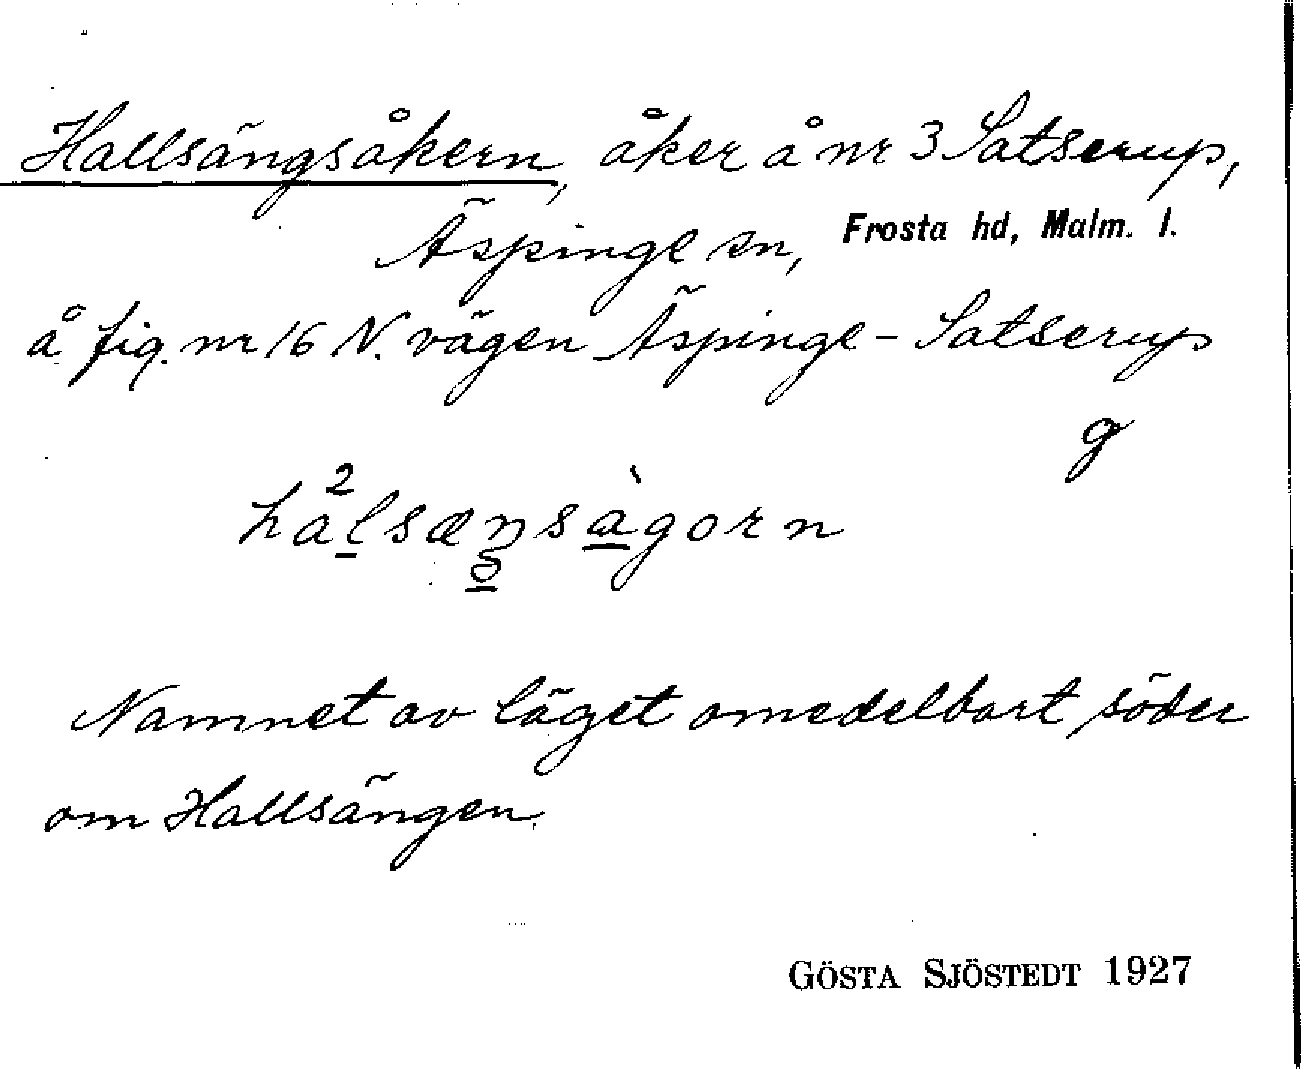 Hallsängsåkern, åker å nr 3 Satserup,
Äspinge sn, Frosta hd, Malm. l.
å fig. nr 16 N. vägen Äspinge - Satserup
g
hal²sæŋsàgorn
Namnet av läget omedelbart söder
om Hallsängen.
GÖSTA SJÖSTEDT 1927